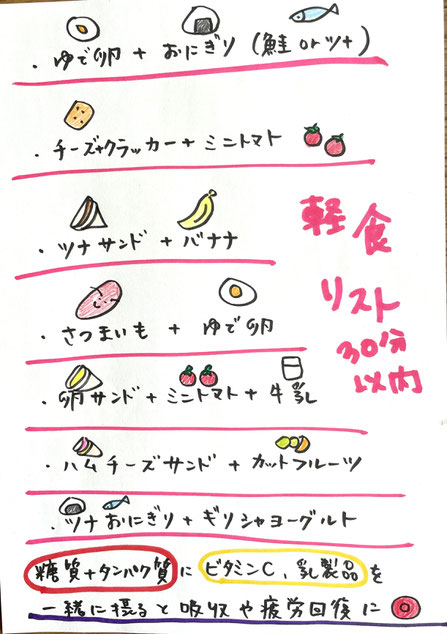 ・ゆで卵 + おにぎり (鮭 or ツナ)
・チーズ+クラッカー + ミニトマト
・ツナサンド + バナナ
・さつまいも + ゆで卵
・卵サンド + ミニトマト + 牛乳
・ハムチーズサンド + カットフルーツ
・ツナおにぎり + ギリシャヨーグルト
軽食
リスト
30分
以内
糖質+タンパク質 に ビタミンC、乳製品 を
一緒に摂ると吸収や疲労回復に◎